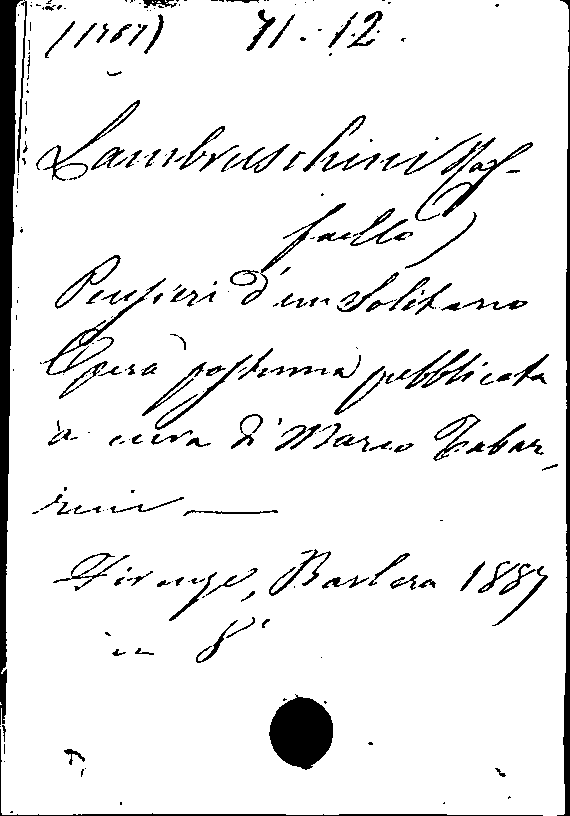 (1787) 71.12.
Lambruschini (Raf-
faello)
Pensieri d'un Solitario
Opera postuma pubblicata
a cura di Marco Tabar,
rini —
Firenze, Barbera 1887
in 8°